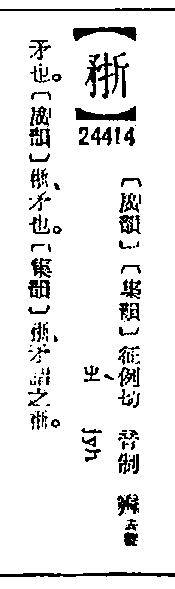 【】
24414
〔廣韻〕〔集韻〕征例切 音制 霽去聲
ㄓˋ jyh
矛也。〔廣韻〕、矛也。〔集韻〕、矛謂之。